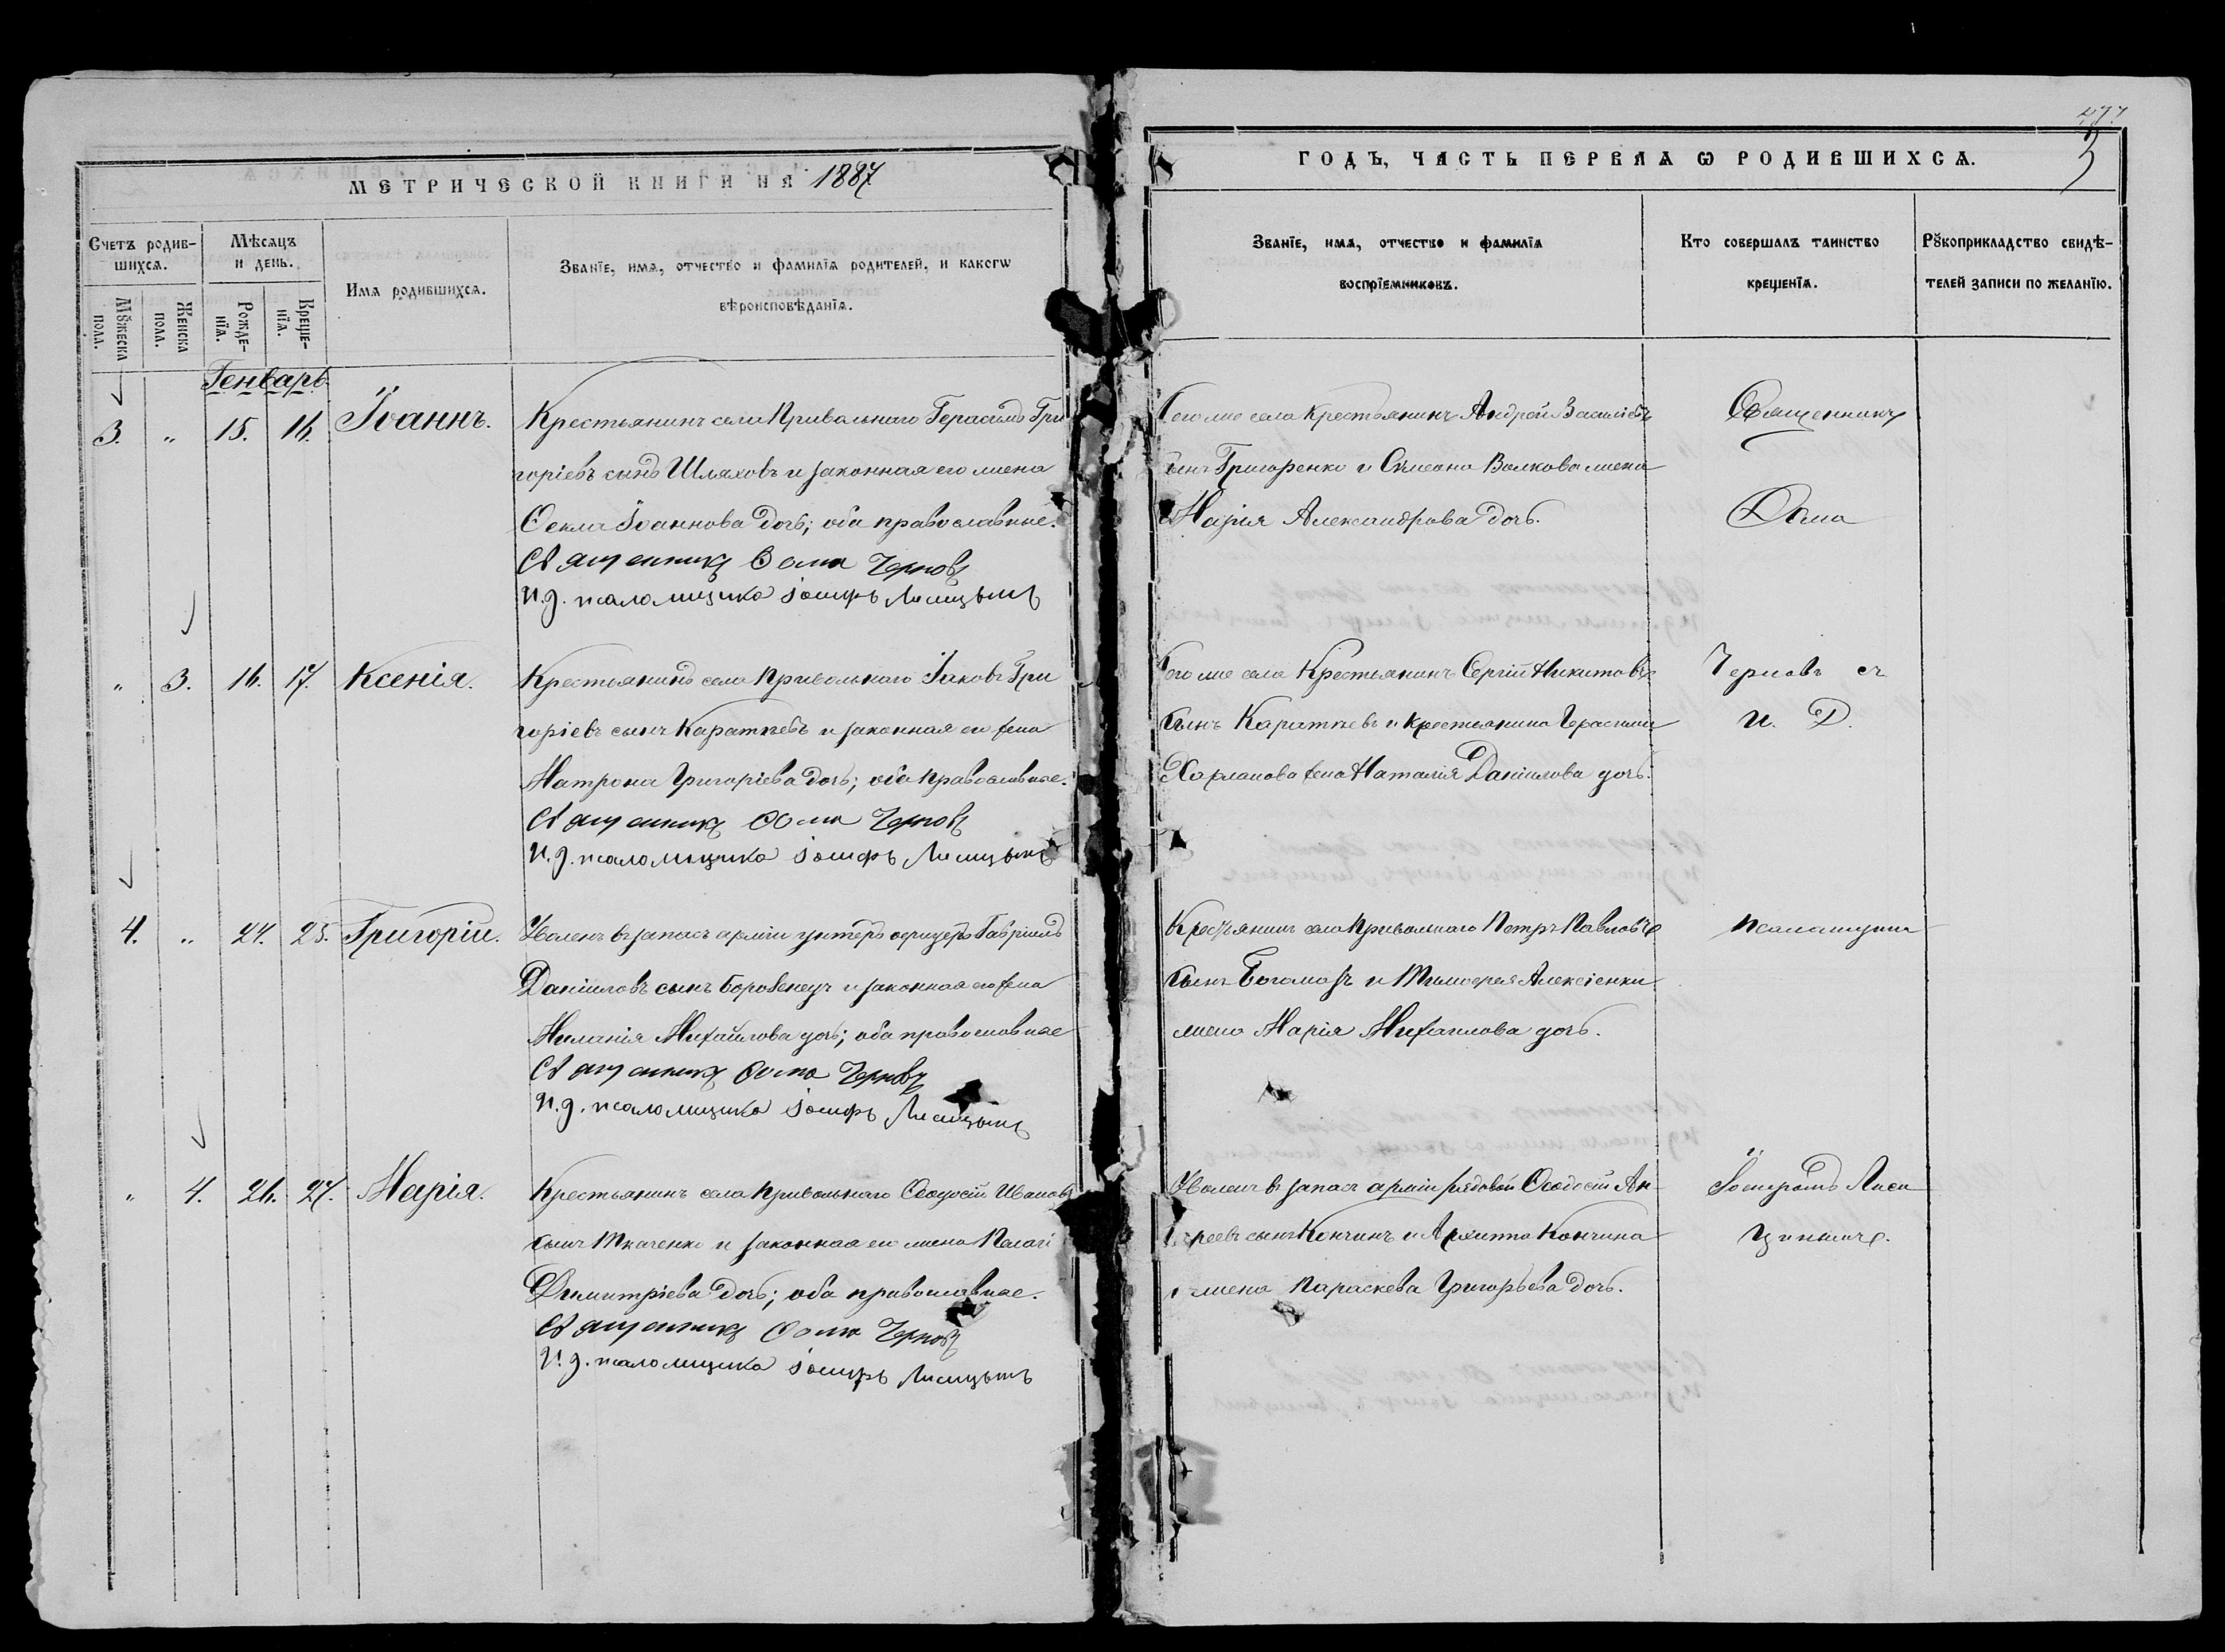 277
3
МЕТРИЧЕСКОЙ КНИГИ НА 1887
ГОДЪ, ЧАСТЬ ПЕРВАЯ Ѡ РОДИВШИХСѦ.
Счетъ родив-
шихсѧ.
Мꙋжеска
пола.
Женска
пола.
Мѣсѧцъ
и день.
Рожде-
нїѧ.
Креще-
нїѧ.
Имѧ родившихсѧ.
Званїе, имѧ, отчество и фамилїѧ родителей, и какогѡ
вѣроисповѣданїѧ.
Званїе, имѧ, отчество и фамилїѧ
воспрїемниковъ.
Кто совершалъ таинство
крещенїѧ.
Рꙋкоприкладство свидѣ-
телей записи по желанїю.
Генварь
3. " 15. 16. Іоаннъ.
Крестьянинъ села Привольнаго Герасимъ Гри
горіевъ сынъ Шляховъ и законная его жена
Ѳекла Іоаннова дочь; оба православные.
Священникъ Ѳома Черновъ
И. д. псаломщика Іосифъ Лисицынъ
Тогоже села крестьянинъ Андрей Васильевъ
сынъ Григоренко и Стефана Волкова жена
Марія Александрова дочь.
Священникъ
Ѳома
" 3. 16. 17. Ксенія.
Крестьянинъ села Привольнаго Іаковъ Гри
горіевъ сынъ Каратѣевъ и законная его жена
Матрона Григоріева дочь; оба православные.
Священникъ Ѳома Черновъ
И. д. псаломщика Іосифъ Лисицынъ
Тогоже села Крестьянинъ Сергій Никитовъ
сынъ Каратѣевъ и крестьянина Герасима
жена Наталія Даніилова дочь.
Черновъ съ
И. Д.
4. " 24. 25. Григорій.
Уволенъ въ запасъ арміи унтеръ офицеръ Гавріилъ
Данііловъ сынъ Боровенецъ и законная его жена
Меланія Михайлова дочь; оба православные
Священникъ Ѳома Черновъ
И. д. псаломщика Іосифъ Лисицынъ
Крестьянинъ села Привольнаго Петръ Павловъ
сынъ Богомазъ и Тимофея Алексіенки
жена Марія Михаилова дочь.
псаломщика
" 4. 26. 27. Марія.
Крестьянинъ села Привольнаго Ѳеодосій Ивановъ
сынъ Ткаченко и законная его жена Пелагі
Димитріева дочь; оба православные.
Священникъ Ѳома Черновъ
И. д. псаломщика Іосифъ Лисицынъ
Уволенъ въ запасъ арміи рядовой Ѳеодосій Ан
дреевъ сынъ Кончинъ и Архиппа Кончина
жена Параскева Григорьева дочь.
Іосифомъ Лиси
цинымъ.